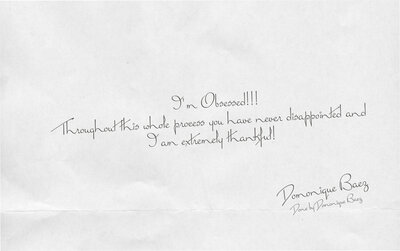 I'm Obsessed!!!
Throughout this whole process you have never disappointed and
I am extremely thankful!
Domonique Baez
Done by Domonique Baez